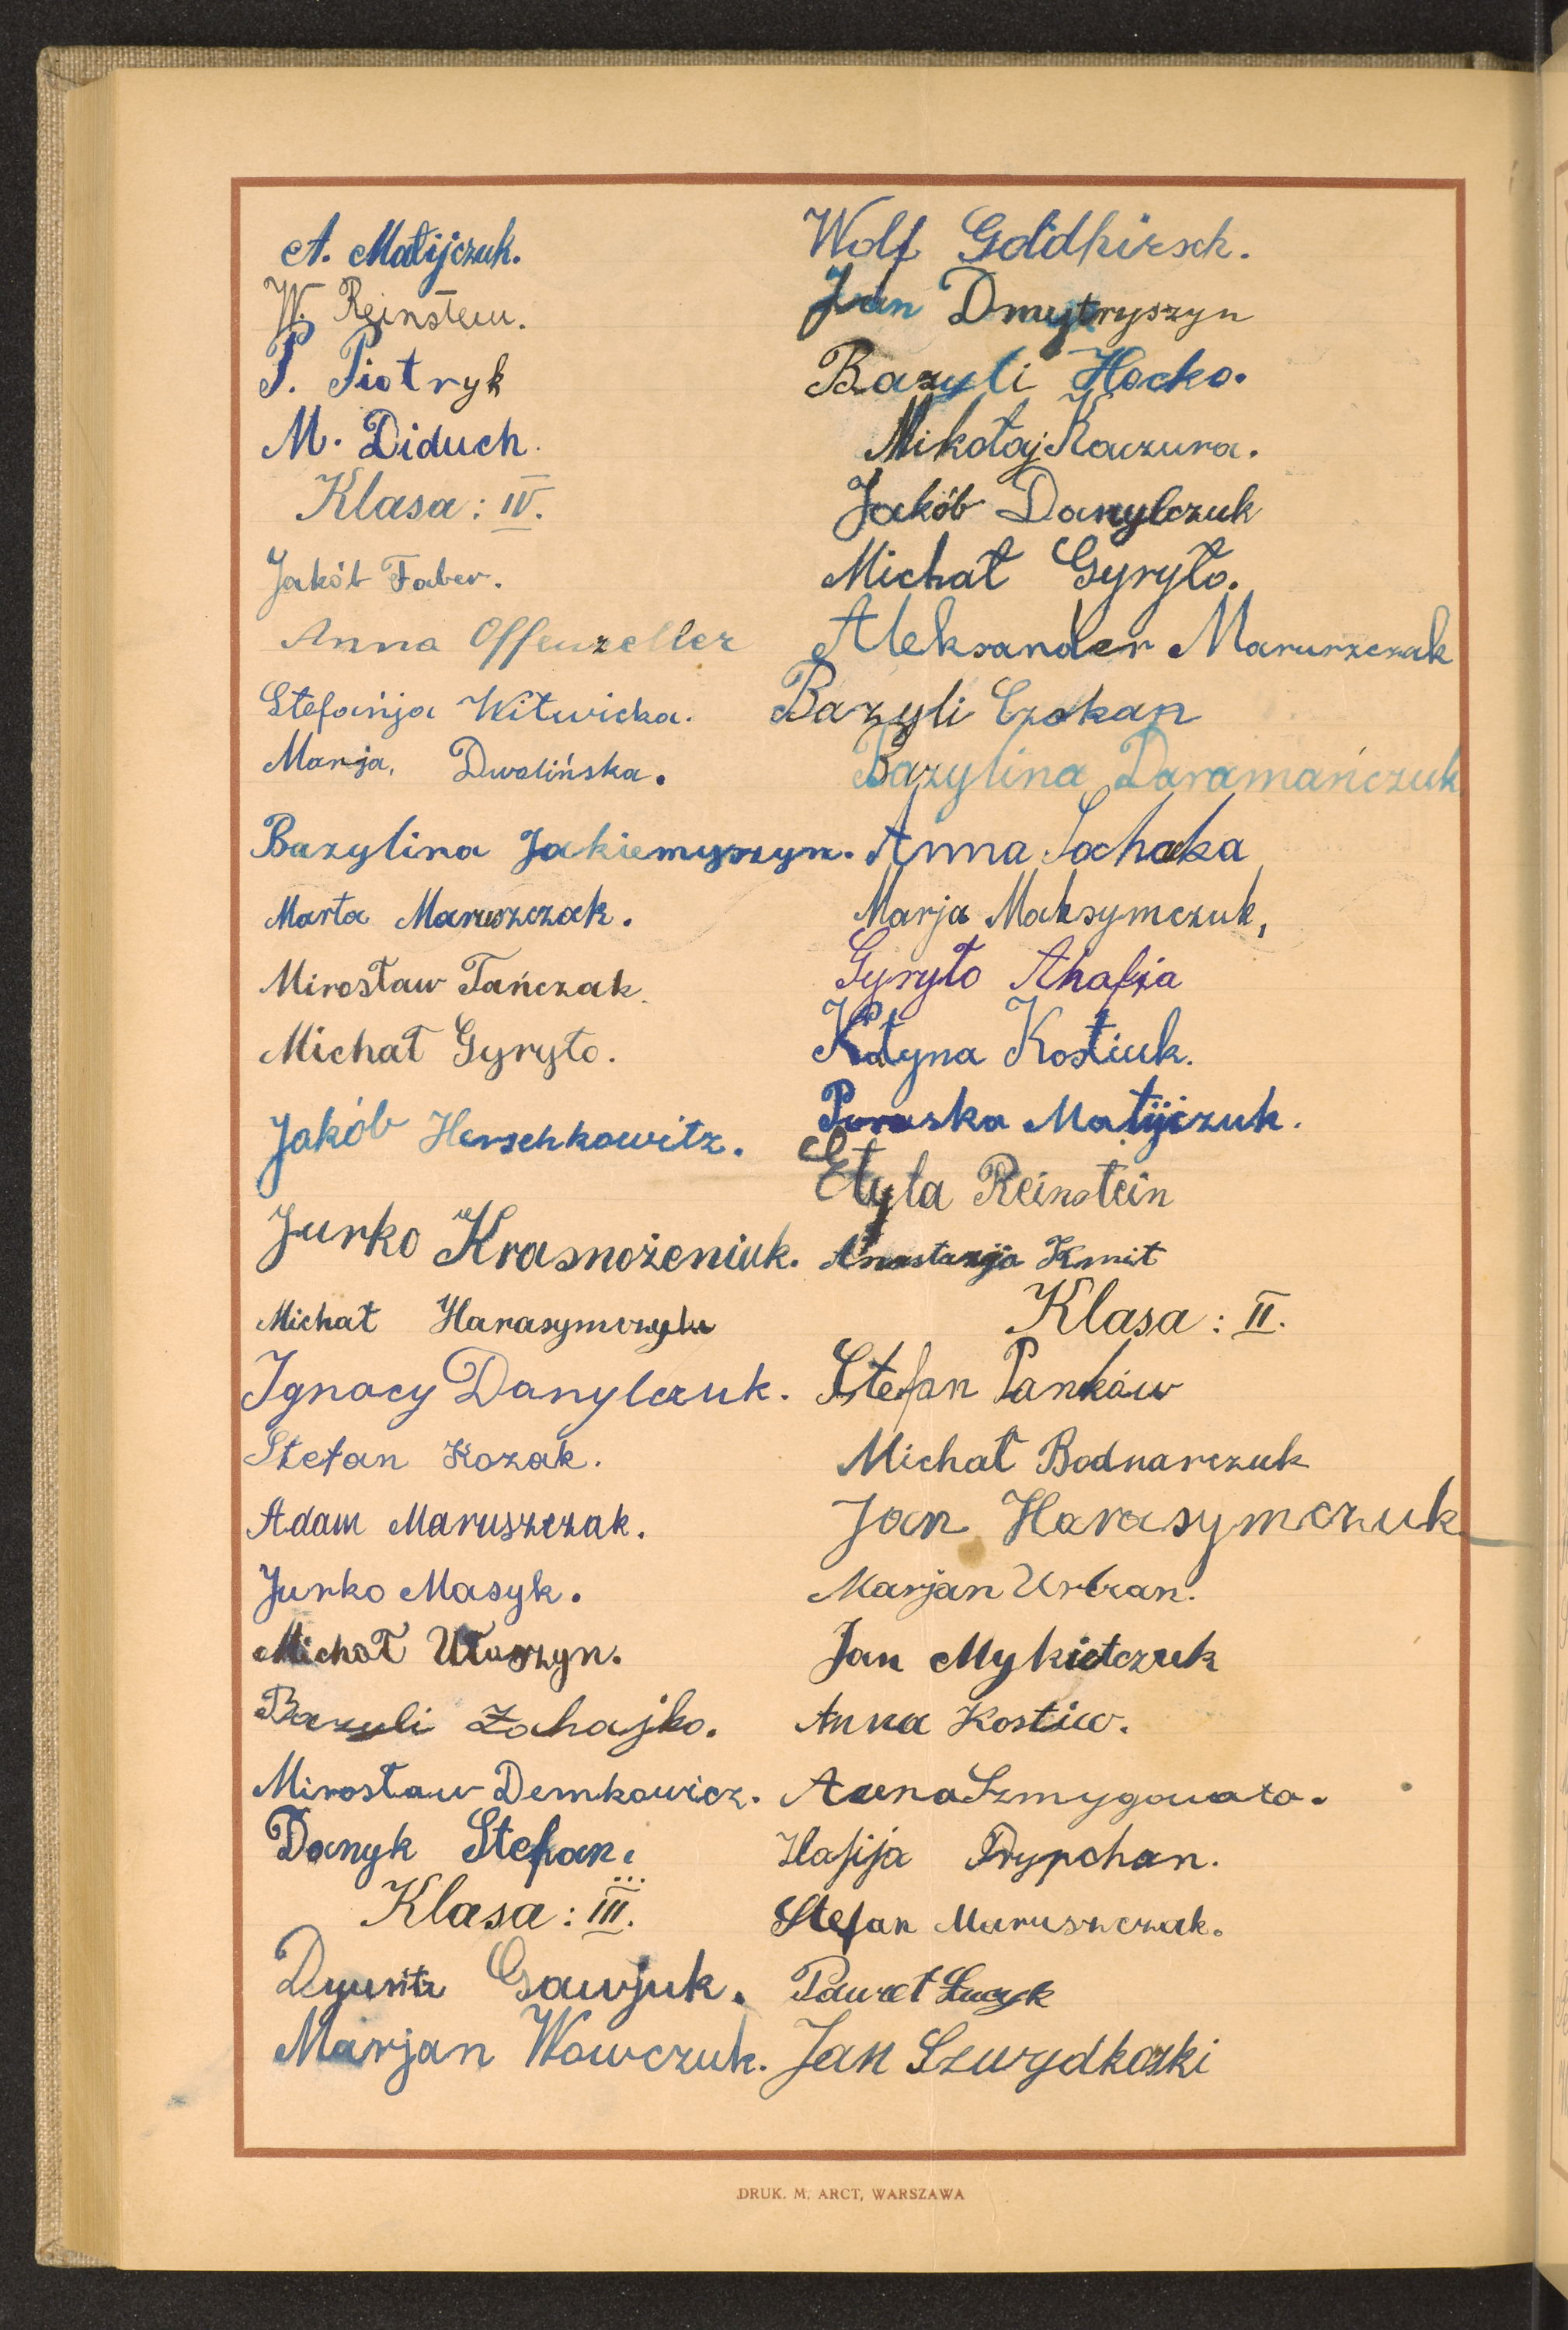 A. Matijczuk.
W. Reinstein.
P. Piotryk
M. Diduch.
Klasa: IV.
Jakób Faber.
Anna Offenzeller
Stefanja Witwicka.
Marja, Dwolińska.
Bazylina Jakiemyszyn.
Marta Maruszczak.
Mirosław Tańczak.
Michał Gyryło.
Jakób Herschkowitz.
Jurko Krasnożeniuk.
Michał Harasymczuk
Ignacy Danylczuk.
Stefan Kozak.
Adam Maruszczak.
Jurko Masyk.
Michał Ułaszyn.
Bazyli Zahajko.
Mirosław Demkowicz.
Danyk Stefan.
Klasa: III.
Gawjuk.
Marjan Wowczuk.
Wolf Goldhirsch.
Jan Dmytryszyn
Bazyli Hocko.
Mikołaj Kaczura.
Jakób Danylczuk
Michał Gyryło.
Aleksander Maruszczak
Bazyli Czokan
Bazylina Daramańczuk
Anna Sochacka
Marja Maksymczuk,
Gyryło Ahafja
Katyna Kostiuk.
Paraska Matijczuk.
Etyla Reinstein
Anastazja Kmit
Klasa: II.
Stefan Pańków
Michał Bodnarczuk
Jan Harasymczuk
Marjan Urban.
Jan Mykietczuk
Anna Kostiw.
Anna Szmygowata.
Hafija Prypchan.
Stefan Maruszczak.
Paweł Łuczyk
Jan Szwydkoski
DRUK. M. ARCT, WARSZAWA